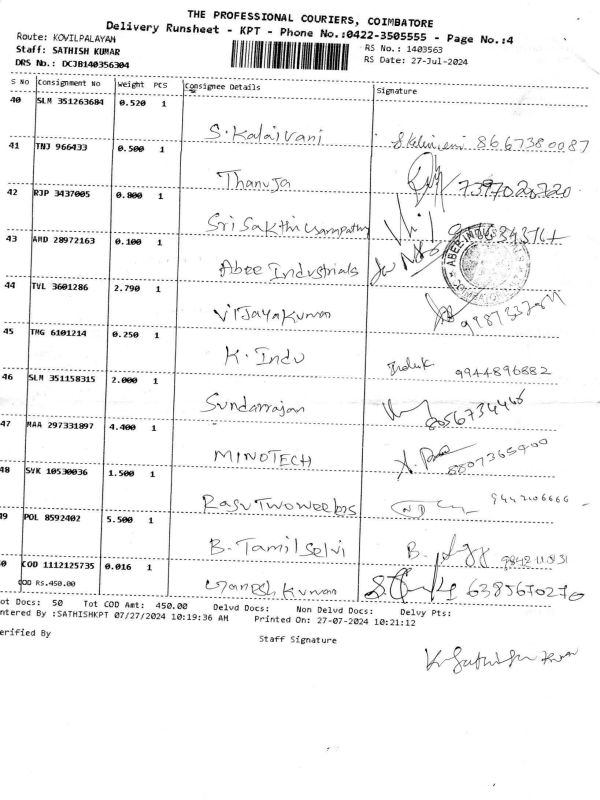 THE PROFESSIONAL COURIERS, COIMBATORE
Delivery Runsheet - KPT - Phone No.:0422-3505555 - Page No.:4
Route: KOVILPALAYAM
RS No.: 1403563
Staff: SATHISH KUMAR
RS Date: 27-Jul-2024
DRS No.: DCJB140356304
S No Consignment No Weight PCS Consignee Details Signature
40 SLM 351263684 0.520 1
S. Kalaivani 8667380087
41 TNJ 966433 0.500 1
Thanuja 7397020720
42 RJP 3437005 0.800 1
Sri Sakthi
43 AMD 28972163 0.100 1
Abee Industrials
44 TVL 3601286 2.790 1
Vijayakumar
45 TMG 6101214 0.250 1
K. Indu 9944896882
46 SLM 351158315 2.000 1
Sundarrajan 8056734446
47 MAA 297331897 4.400 1
MINOTECH
48 SYK 10530036 1.500 1
Rasu Twoweelers
49 POL 8592402 5.500 1
B. Tamil Selvi B.
50 COD 1112125735 0.016 1
COD Rs.450.00 Ganesh Kumar 6385670270
Tot Docs: 50 Tot COD Amt: 450.00 Delvd Docs: Non Delvd Docs: Delvy Pts:
Entered By :SATHISHKPT 07/27/2024 10:19:36 AM Printed On: 27-07-2024 10:21:12
Verified By
Staff Signature
K. Sathish Kumar